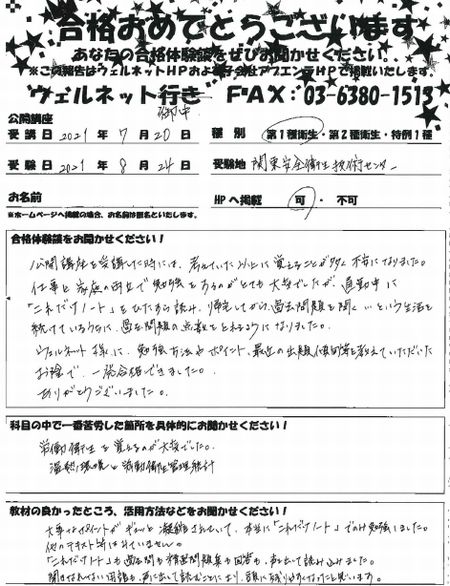 合格おめでとうございます
あなたの合格体験談をぜひお聞かせください。
※この報告はウェルネットHPおよび子会社アプエンテHPで掲載いたします。
ウェルネット行き 御中 FAX:03-6380-1513
公開講座
受講日 2021年 7月 20日 種別 第1種衛生・第2種衛生・特例1種
受験日 2021年 8月 24日 受験地 関東安全衛生技術センター
お名前 HPへ掲載 可・不可
※ホームページへ掲載の場合、お名前は匿名といたします。
合格体験談をお聞かせください!
公開講座を受講した時には、考えていた以上に覚えることが多く不安になりました。
仕事と家庭の両立で勉強をするのがとても大変でしたが、通勤中に
「これだけノート」をひたすら読み、帰宅してから過去問題を開く…という生活を
続けているうちに、過去問題の点数もとれるようになりました。
ウェルネット様に、勉強方法やポイント、最近の出題傾向等を教えていただいた
お陰で、一発合格できました。
ありがとうございました。
科目の中で一番苦労した箇所を具体的にお聞かせください!
労働衛生を覚えるのが大変でした。
温熱環境と労働衛生管理統計
教材の良かったところ、活用方法などをお聞かせください!
大事なポイントがギュッと凝縮されていて、本当に「これだけノート」でのみ勉強しました。
他のテキスト等はみていません。
「これだけノート」も過去問も精選問題集も回答も、声に出して読み込みました。